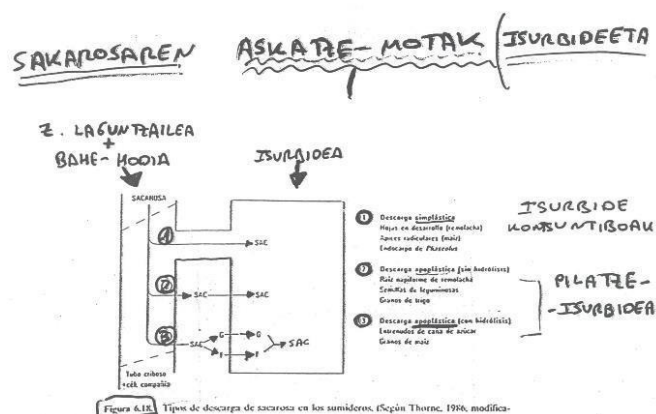 SAKAROSAREN ASKATZE-MOTAK (ISURBIDEETA
Z. LAGUNTZAILEA
+
BAHE-HODIA
ISURBIDEA
SACAROSA
1
SAC
2
SAC
SAC
3
SAC
G
G
F
F
SAC
Tubo criboso
+cél. compañía
1 Descarga simplástica
Hojas en desarrollo (remolacha)
Apices radiculares (maíz)
Endocarpo de Phaseolus
2 Descarga apoplástica (sin hidrólisis)
Raíz napiforme de remolacha
Semillas de leguminosas
Granos de trigo
3 Descarga apoplástica (con hidrólisis)
Entrenudos de caña de azúcar
Granos de maíz
ISURBIDE
KONTSUNTIBOAK
PILATZE-
-ISURBIDEA
Figura 6.18. Tipos de descarga de sacarosa en los sumideros. (Según Thorne, 1986, modifica-